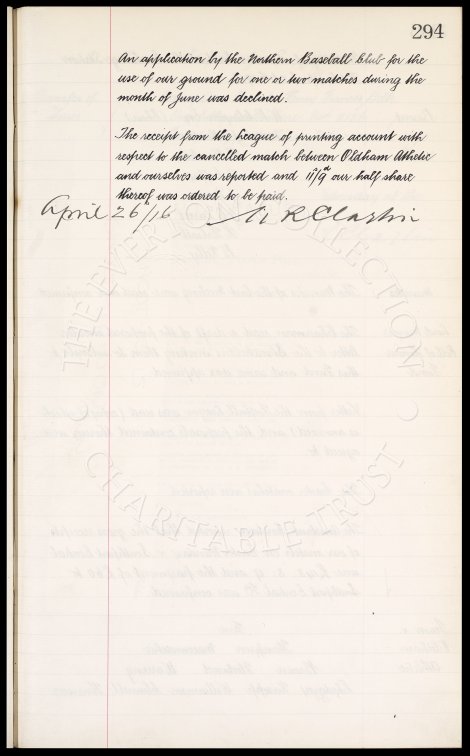 294
An application by the Northern Baseball Club for the
use of our ground for one or two matches during the
month of June was declined.
The receipt from the League of printing account with
respect to the cancelled match between Oldham Athletic
and ourselves was reported and 11/9d our half share
thereof was ordered to be paid.
April 26/16 W R Clayton
THE EVERTON COLLECTION
CHARITABLE TRUST